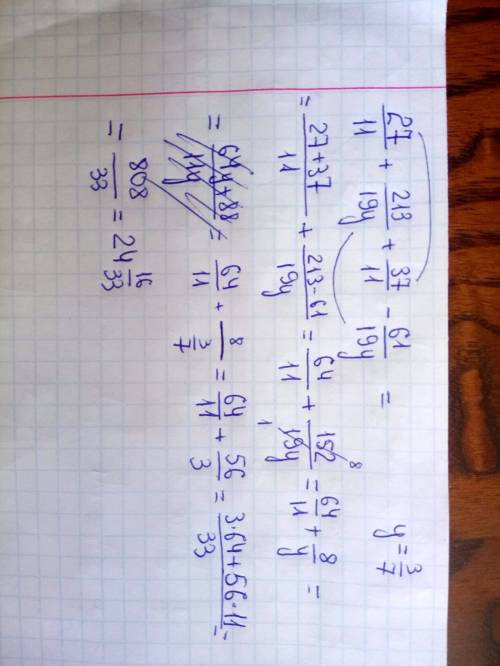 27/11 + 213/19y + 37/11 - 61/19y = y = 3/7
= 27+37/11 + 213-61/19y = 64/11 + 152/19y = 64/11 + 8/y =
8
1
= 64y+88/11y = 64/11 + 8/(3/7) = 64/11 + 56/3 = 3·64+56·11/33 =
= 808/33 = 24 16/33